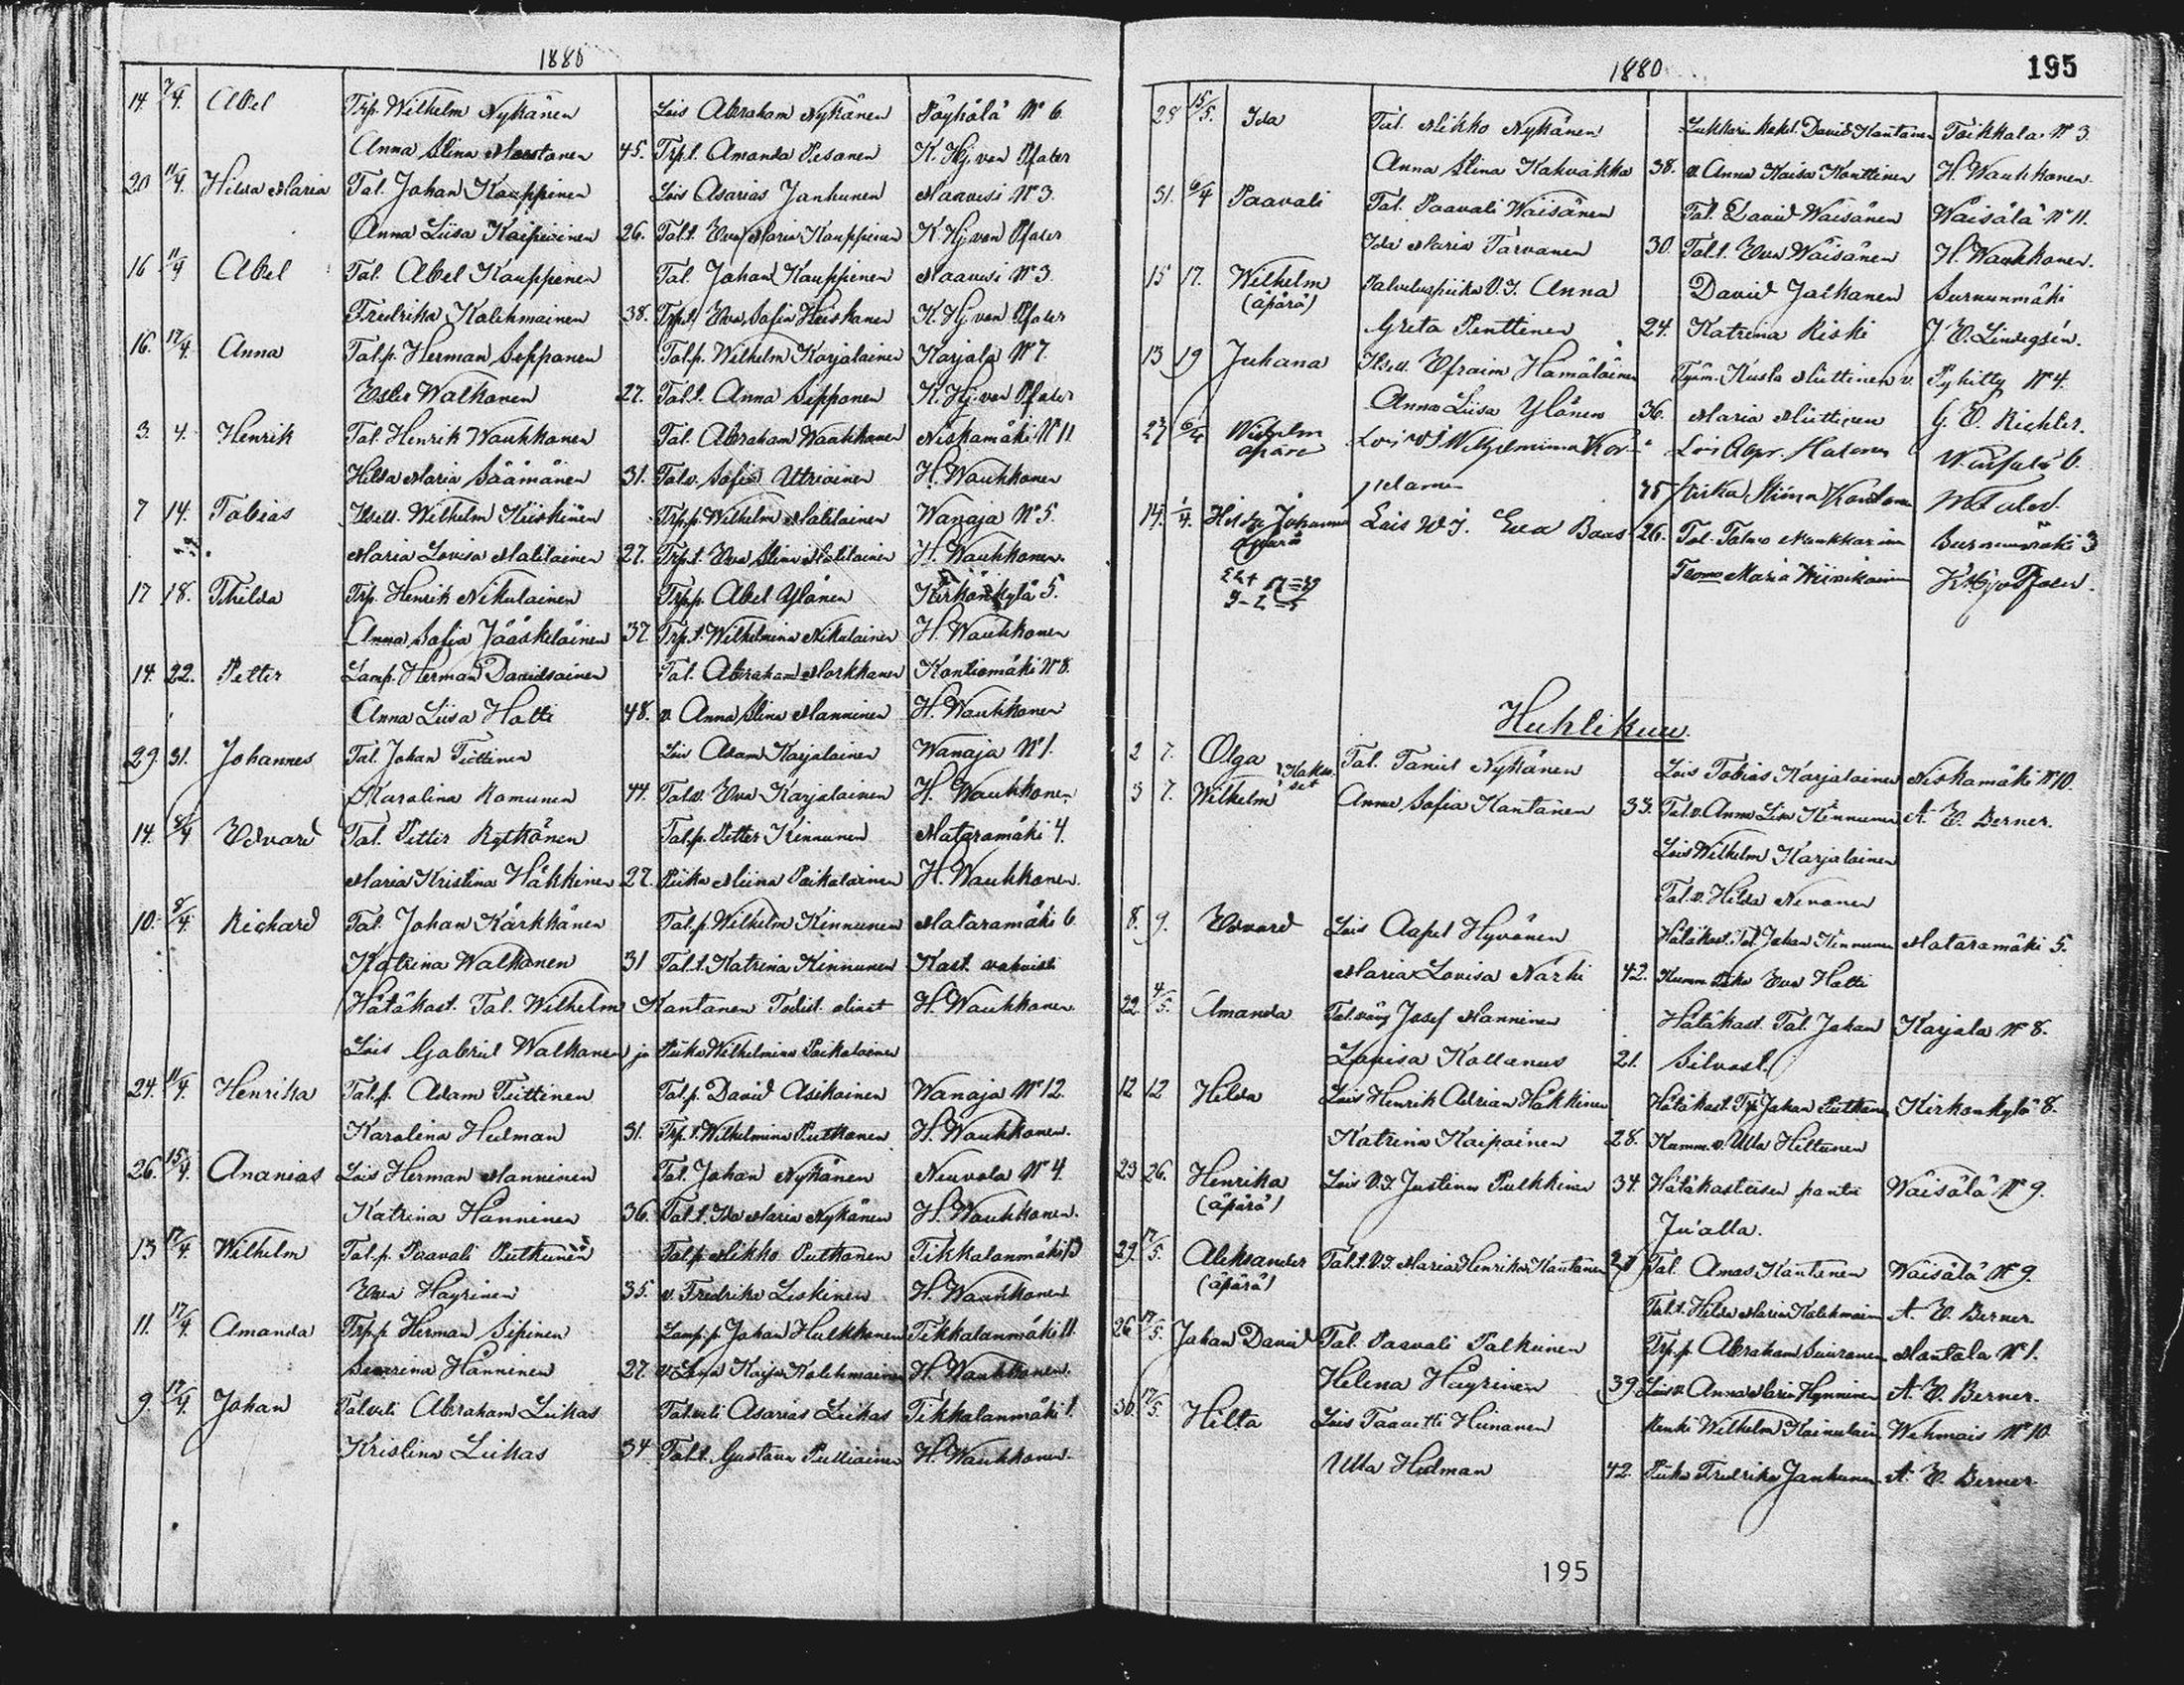 1880
14 7/4. Abel Trp. Wilhelm Nykänen Lois Abraham Nykänen Pöyhölä Nº 6.
Anna Stina Mustonen 45. Trp.t. Amanda Pesonen K. Hj. von Pfaler
20 11/4. Hilda Maria Tal. Johan Kauppinen Lois Asarias Janhunen Maavesi Nº 3.
Anna Liisa Kaipainen 26. Tal.t. Eva Maria Kauppinen K. Hj. von Pfaler
16 11/4 Abel Tal. Abel Kauppinen Tal. Johan Kauppinen Maavesi Nº 3.
Fredrika Kolehmainen 38. Trp.t. Eva Sofia Heiskanen K. Hj. von Pfaler
16. 17/4. Anna Tal.p. Herman Sepponen Tal.p. Wilhelm Karjalainen Karjala Nº 7.
Ester Walkonen 27. Tal.t. Anna Sepponen K. Hj. von Pfaler
3. 4. Henrik Tal. Henrik Wauhkonen Tal. Abraham Wauhkonen Niskamäki Nº 11
Hilda Maria Säämänen 31. Tal.v. Sofia Utriainen H. Wauhkonen
7 14. Tobias Itsell. Wilhelm Kiiskinen Trp.p. Wilhelm Malilainen Wanaja Nº 5.
Maria Lovisa Malilainen 27. Trp.t. Eva Stina Malilainen H. Wauhkonen.
17 18. Thilda Trp. Henrik Nikulainen Trp.p. Abel Ylönen Kirkonkylä 5.
Anna Sofia Jääskeläinen 37. Trp.t. Wilhelmina Nikulainen H. Wauhkonen
14. 22. Petter Lamp. Herman Davidsainen Tal. Abraham Markkanen Kontiomäki Nº 8.
Anna Liisa Hatti 48. v. Anna Stina Manninen H. Wauhkonen
29. 31. Johannes Tal. Johan Tiittinen Lois Adam Karjalainen Wanaja Nº 1.
Karolina Romunen 44. Tal.v. Eva Karjalainen H. Wauhkonen
14. 8/4 Edvard Tal. Petter Rytkönen Tal.p. Petter Kinnunen Mataramäki 4.
Maria Kristina Häkkinen 27. Piika Miina Paikalainen H. Wauhkonen.
10. 8/4. Richard Tal. Johan Kärkkänen Tal.p. Wilhelm Kinnunen Mataramäki 6
Katrina Walkonen 31 Tal.t. Katrina Kinnunen Kast. vahvisti
Hätäkast. Tal. Wilhelm Kantanen Todist. olivat H. Wauhkonen
Lois Gabriel Walkonen ja Piika Wilhelmina Paikalainen
24. 11/4. Henrika Tal.p. Adam Tiittinen Tal.p. David Asikainen Wanaja Nº 12.
Karolina Hulman 31. Trp.t. Wilhelmina Putkonen H. Wauhkonen.
26. 15/4. Ananias Lois Herman Manninen Tal. Johan Nykänen Neuvola Nº 4.
Katrina Hänninen 36. Tal.t. Ida Maria Nykänen H. Wauhkonen.
13 17/4. Wilhelm Tal.p. Paavali Putkunen Tal.p. Mikko Putkonen Tikkalanmäki 13
Eva Häyrinen 35. v. Fredrika Leskinen H. Wauhkonen
11. 17/4. Amanda Trp.p. Herman Sipinen Lamp.p. Johan Hulkkonen Tikkalanmäki 11.
Severina Hänninen 27. v. Lena Kaisa Kolehmainen H. Wauhkonen.
9. 17/4. Johan Tal.veli Abraham Liikas Tal.veli Asarias Liikas Tikkalanmäki 1.
Kristina Liikas 34 Tal.t. Gustava Pulliainen H. Wauhkonen.
1880
195
28 15/5. Ida Tal. Mikko Nykänen Lukkarin kokel. David Kantanen Toikkala Nº 3.
Anna Stina Kakvakka 38. v. Anna Kaisa Konttinen H. Wauhkonen.
31. 6/4 Paavali Tal. Paavali Wäisänen Tal. David Wäisänen Wäisälä Nº 11.
Ida Maria Tarvanen 30 Tal.t. Eva Wäisänen H. Wauhkonen.
15 17. Wilhelm Palveluspiika V.I. Anna David Jalkanen Surnunmäki
(äpärä) Greta Penttinen 24. Katrina Riski J. E. Lindegsén.
13 19 Juhana Itsell. Efraim Hämäläinen Työm. Kusta Miettinen v. Pyhitty Nº 4.
Anna Liisa Ylönen 36. Maria Miettinen G. E. Richler.
27 6/4 Wilhelm Lois V.I. Wilhelmiina Lois Abr.
äpärä 6.
14. 1/4. Hilda Johanna Lois W.I. Eva Baas 26. Tal. Surnunmäki 3
äpärä Maria
Huhtikuu.
2 7. Olga Kaksoset Tal. Taniel Nykänen Lois Tobias Karjalainen Niskamäki Nº 10.
3 7. Wilhelm Anna Sofia Kantanen 33. Tal.v. Anna Liisa Kinnunen A. E. Berner.
Lois Wilhelm Karjalainen
Tal.v. Hilda Nenonen
8. 9. Edvard Lois Aapel Hyvönen Hätäkast. Tal. Johan Kinnunen Mataramäki 5.
Maria Lovisa Närhi 42. Kumm. Piika Eva Hatti
22. 4/5. Amanda Tal.väv. Josef Manninen Hätäkast. Tal. Johan Karjala Nº 8.
Lovisa Kollanus 21. Silvast.
12 12 Hilda Lois Henrik Adrian Häkkinen Hätäkast. Trp. Johan Putkonen Kirkonkylä 8.
Katrina Kaipainen 28. Kumm. v. Ulla Hiltunen
23 26. Henrika Lois V.I. Justina Pulkkinen 34. Hätäkasteisen pantu Wäisälä Nº 9.
(äpärä) Ju'alla.
29. 17/5. Aleksander Tal.t. V.I. Maria Henrika Kantanen Tal. Amas Kantanen Wäisälä Nº 9.
(äpärä) Tal.t. Hilda Maria Kolehmain A. E. Berner
26 17/5. Johan David Tal. Paavali Palkinen Trp.p. Abraham Suuronen Montola Nº 1.
Helena Häyrinen 39 Lois v. Anna Maria Hynninen A. E. Berner.
30. 17/5. Hilta Lois Taavetti Hiinanen Renki Wilhelm Kainulain Wehmais Nº 10
Ulla Hulman 42. Piika Fredrika Janhunen A. E. Berner
195